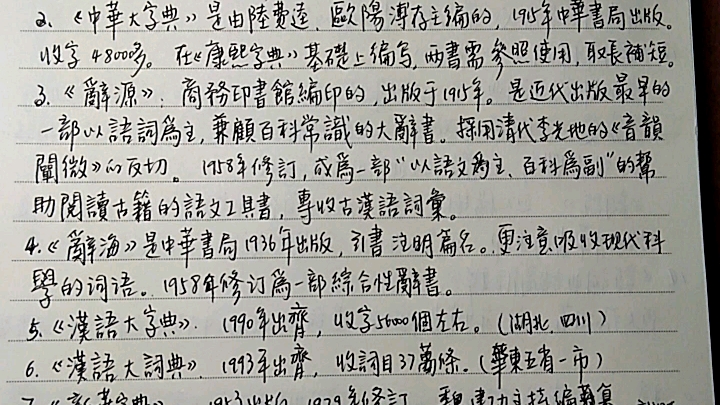 2、《中華大字典》是由陸費逵、歐陽溥存主编的,1915年中華書局出版。
收字48000多。在《康熙字典》基礎上编写,两書需參照使用,取長補短。
3、《辭源》:商務印書館編印的,出版于1915年。是近代出版最早的
一部以語詞爲主,兼顧百科常識的大辭書。採用清代李光地的《音韻
闡微》的反切。1958年修訂,成爲一部“以語文爲主、百科爲副”的幫
助閱讀古籍的語文工具書,專收古漢語詞彙。
4、《辭海》是中華書局1936年出版,引書注明篇名。更注意吸收现代科
學的词语。1958年修订爲一部綜合性辭書。
5、《漢語大字典》. 1990年出齊,收字56000個左右。(湖北、四川)
6、《漢語大詞典》. 1993年出齊,收詞目37萬條。(華東五省一市)
7、 字典》 1953出版 1979年修订